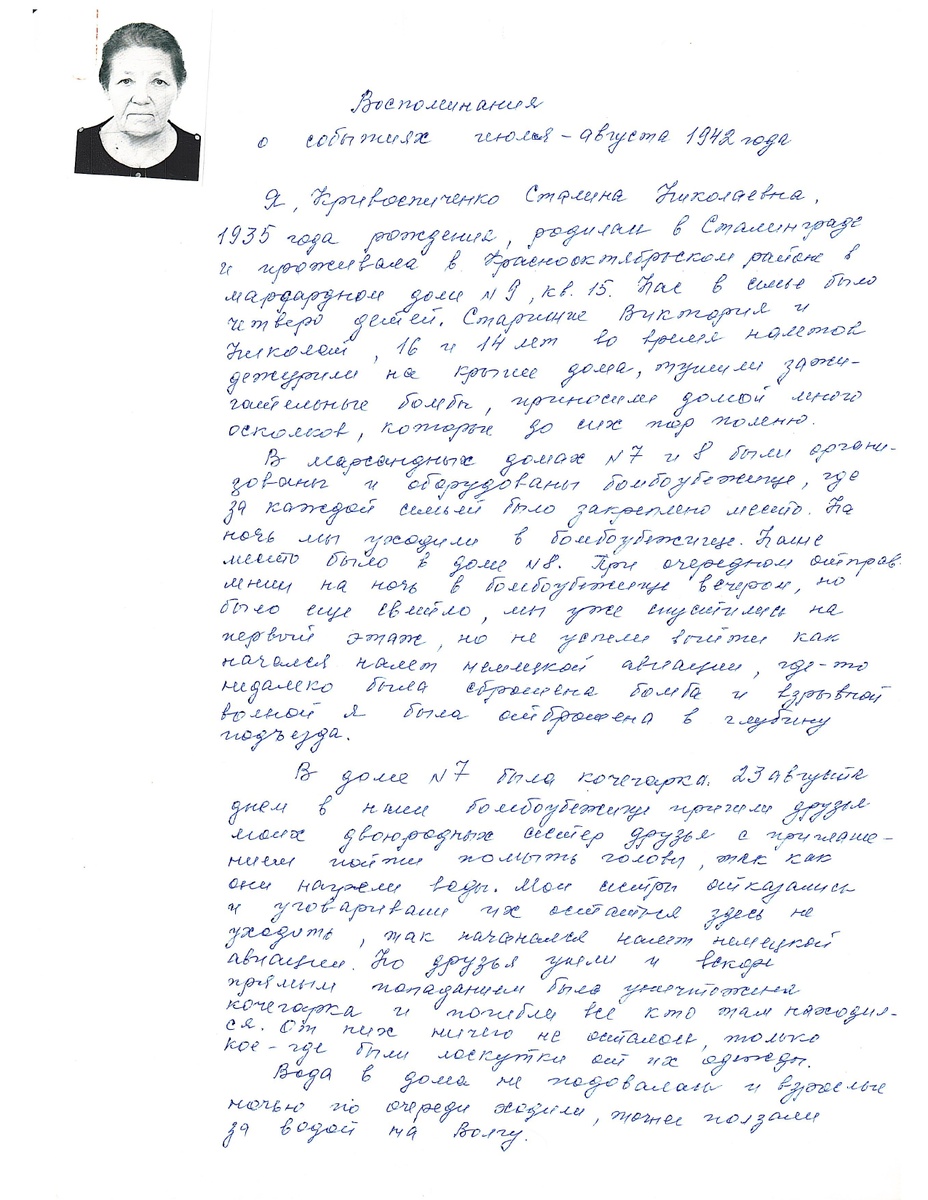 Воспоминания
о событиях июля - августа 1942 года
Я, Кривоспиченко Сталина Николаевна,
1935 года рождения, родилась в Сталинграде
и проживала в Краснооктябрьском районе в
доме №9, кв. 15. Нас в семье было
четверо детей. Старшие Виктория и
Николай, 16 и 14 лет во время налетов
дежурили на крыше дома, тушили зажи-
гательные бомбы, приносили домой много
осколков, которые до сих пор помню.
В мансардных домах №7 и 8 были органи-
зованы и оборудованы бомбоубежище, где
за каждой семьей было закреплено место. На
ночь мы уходили в бомбоубежище. Наше
место было в доме №8. При очередном отправ
лении на ночь в бомбоубежище вечером, но
было еще светло, мы уже спустились на
первый этаж, но не успели выйти как
начался налет немецкой авиации, где-то
недалеко была сброшена бомба и взрывной
волной я была отброшена в глубину
подъезда.
В доме №7 была кочегарка. 23 августа
днем в наше бомбоубежище пришли друзья
моих двоюродных сестер друзья с приглаше-
нием пойти помыть голову, так как
они нагрели воды. Мои сестры отказались
и уговаривали их остаться здесь не
уходить, так начинался налет немецкой
авиации. Но друзья ушли и вскоре
прямым попаданием была уничтожена
кочегарка и погибли все кто там находил-
ся. От них ничего не осталось, только
кое-где были лоскутки от их одежды.
Вода в дома не подавалась и взрослые
ночью по очереди ходили, точнее ползали
за водой на Волгу.